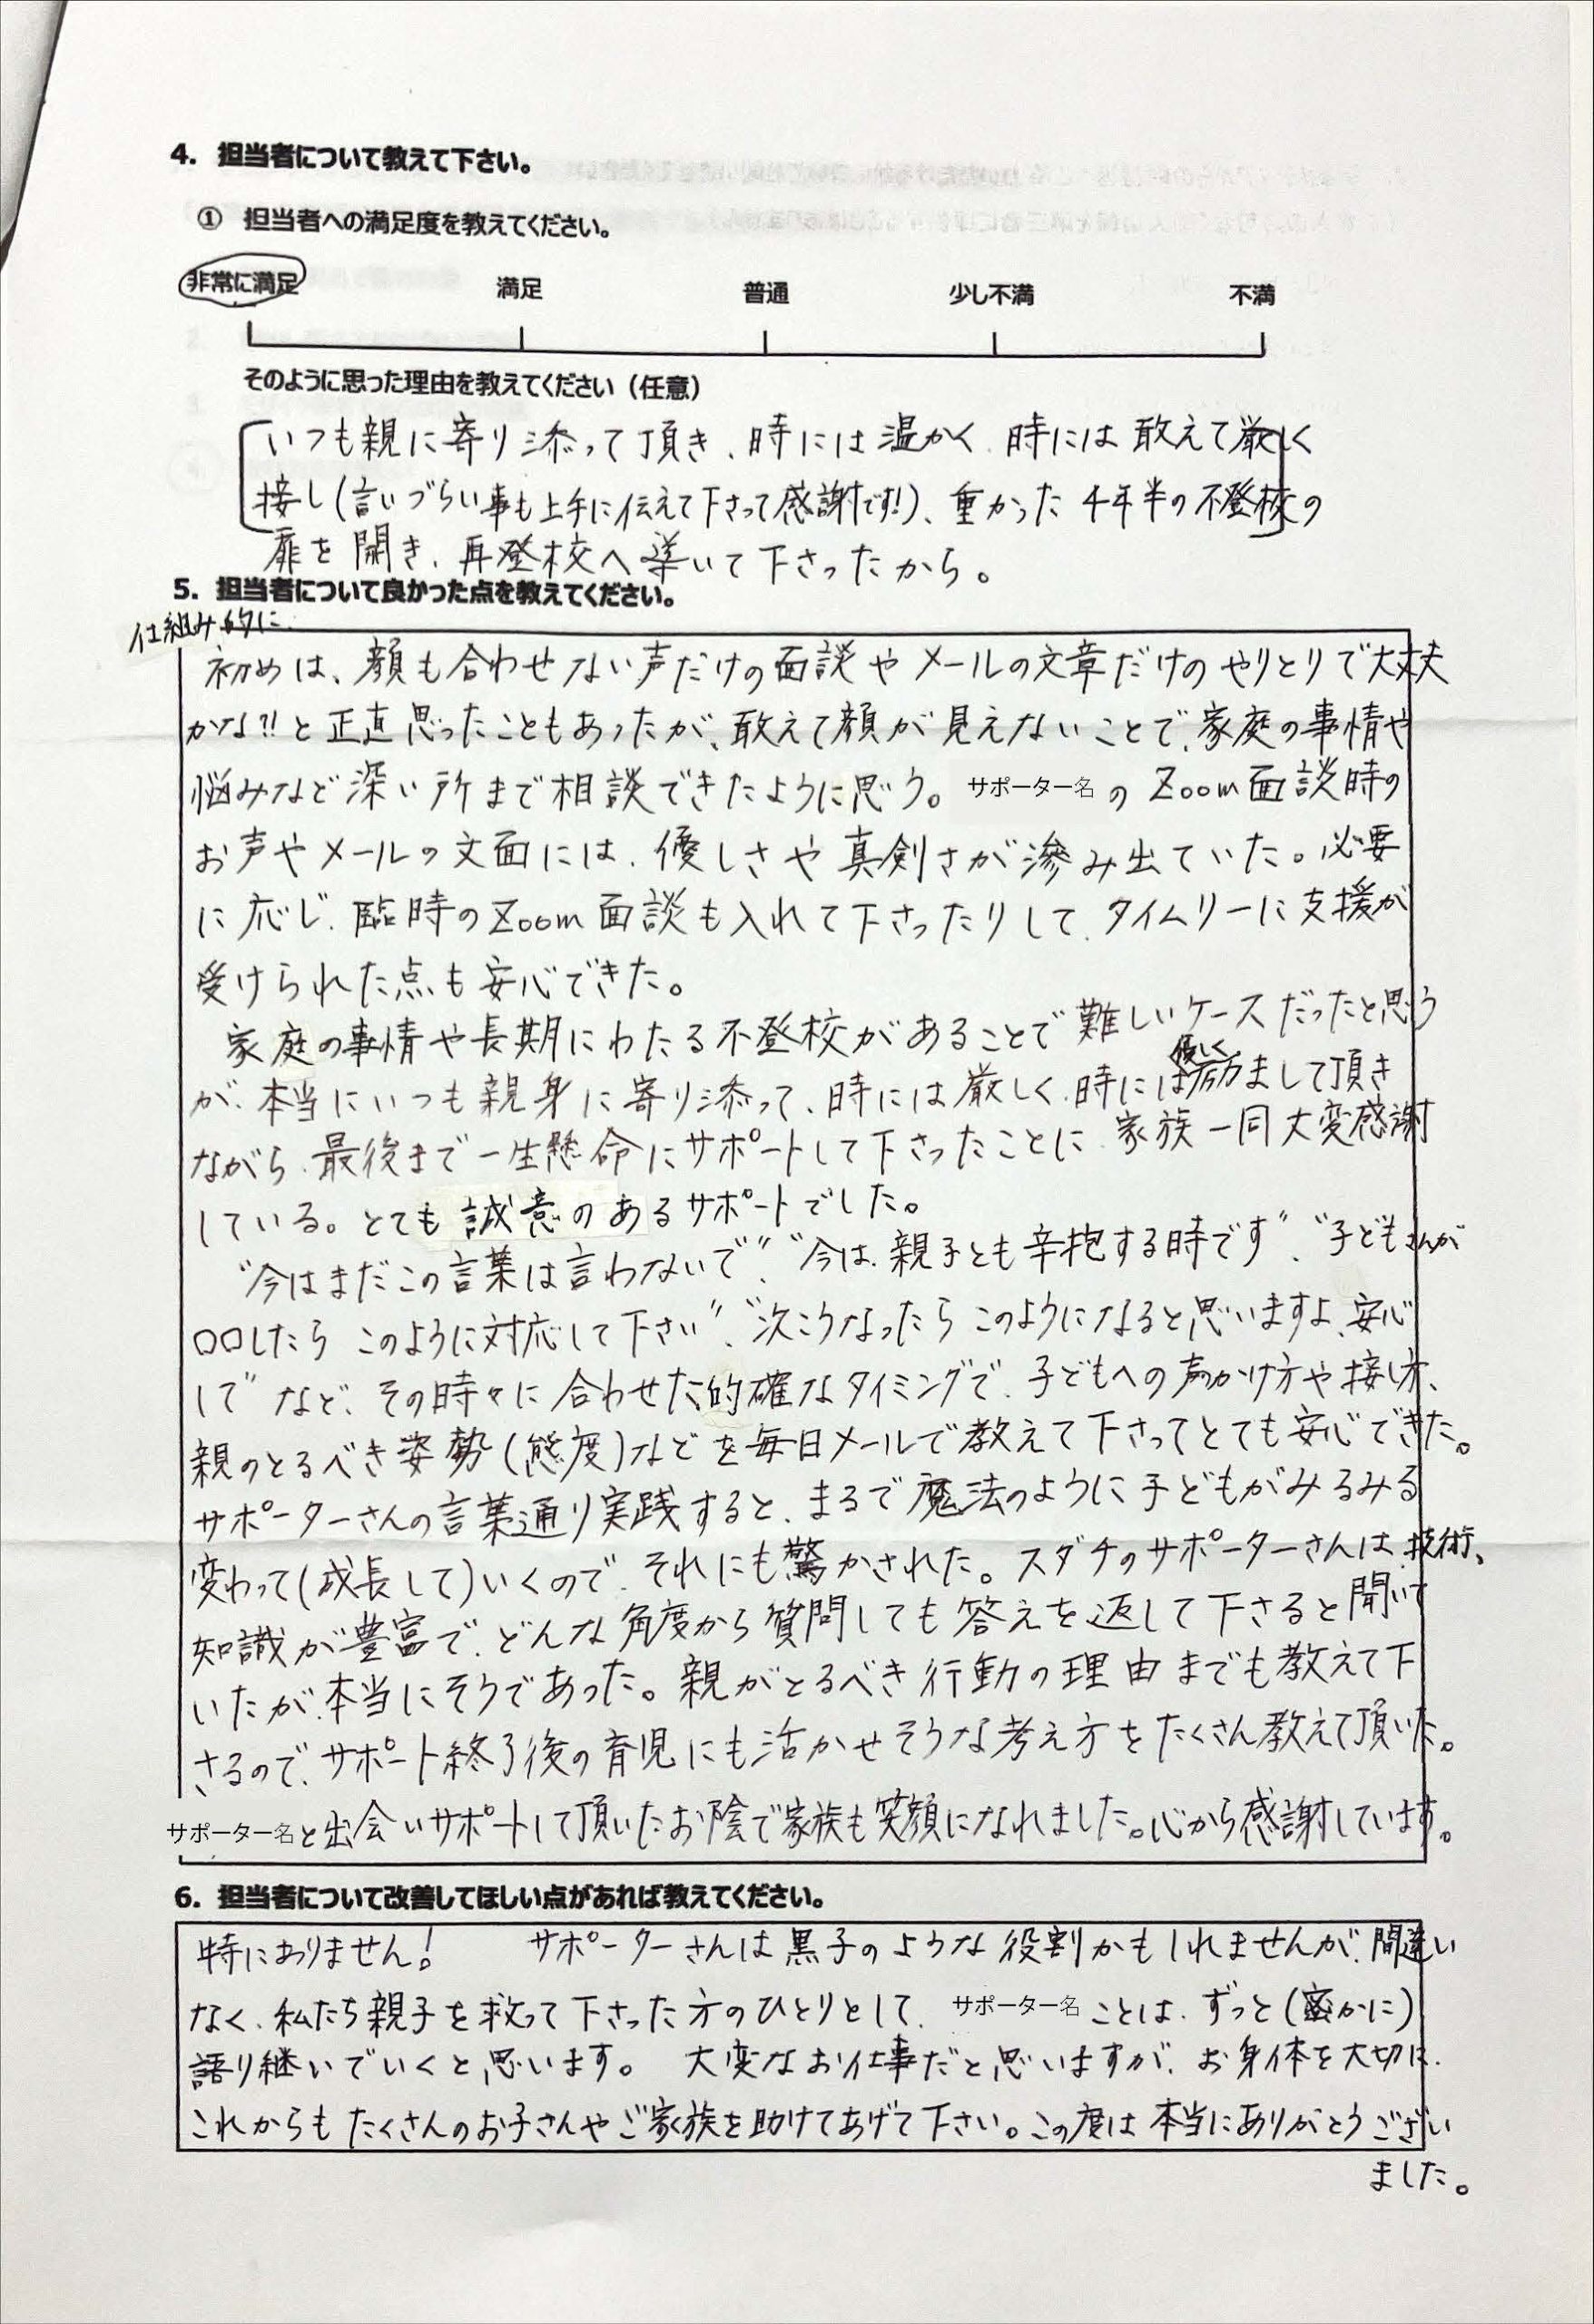 4. 担当者について教えて下さい。
① 担当者への満足度を教えてください。
非常に満足 満足 普通 少し不満 不満
そのように思った理由を教えてください（任意）
いつも親に寄り添って頂き、時には温かく、時には敢えて厳しく
接し(言いづらい事も上手に伝えて下さって感謝です!)、重かった4年半の不登校の
扉を開き、再登校へ導いて下さったから。
5. 担当者について良かった点を教えてください。
仕組み的に、
初めは、顔も合わせない声だけの面談やメールの文章だけのやりとりで大丈夫
かな?!と正直思ったこともあったが、敢えて顔が見えないことで、家庭の事情や
悩みなど深い所まで相談できたように思う。サポーター名のZoom面談時の
お声やメールの文面には、優しさや真剣さが滲み出ていた。必要
に応じ、臨時のZoom面談も入れて下さったりして、タイムリーに支援が
受けられた点も安心できた。
家庭の事情や長期にわたる不登校があることで難しいケースだったと思う
が、本当にいつも親身に寄り添って、時には厳しく、時には優しく励まして頂き
ながら、最後まで一生懸命にサポートして下さったことに、家族一同大変感謝
している。とても誠意のあるサポートでした。
"今はまだこの言葉は言わないで"、"今は、親子とも辛抱する時です"、"子どもさんが
〇〇したら このように対応して下さい"、"次こうなったらこのようになると思いますよ、安心
して"など、その時々に合わせた的確なタイミングで、子どもへの声かけ方や接し方、
親のとるべき姿勢(態度)などを毎日メールで教えて下さってとても安心できた。
サポーターさんの言葉通り実践すると、まるで魔法のように子どもがみるみる
変わって(成長して)いくので、それにも驚かされた。スダチのサポーターさんは、技術、
知識が豊富で、どんな角度から質問しても答えを返して下さると聞いて
いたが、本当にそうであった。親がとるべき行動の理由までも教えて下
さるので、サポート終了後の育児にも活かせそうな考え方をたくさん教えて頂いた。
サポーター名と出会いサポートして頂いたお陰で家族も笑顔になれました。心から感謝しています。
6. 担当者について改善してほしい点があれば教えてください。
特にありません! サポーターさんは黒子のような役割かもしれませんが、間違い
なく、私たち親子を救って下さった方のひとりとして、サポーター名ことは、ずっと(密かに)
語り継いでいくと思います。 大変なお仕事だと思いますが、お身体を大切に、
これからもたくさんのお子さんやご家族を助けてあげて下さい。この度は本当にありがとうござい
ました。